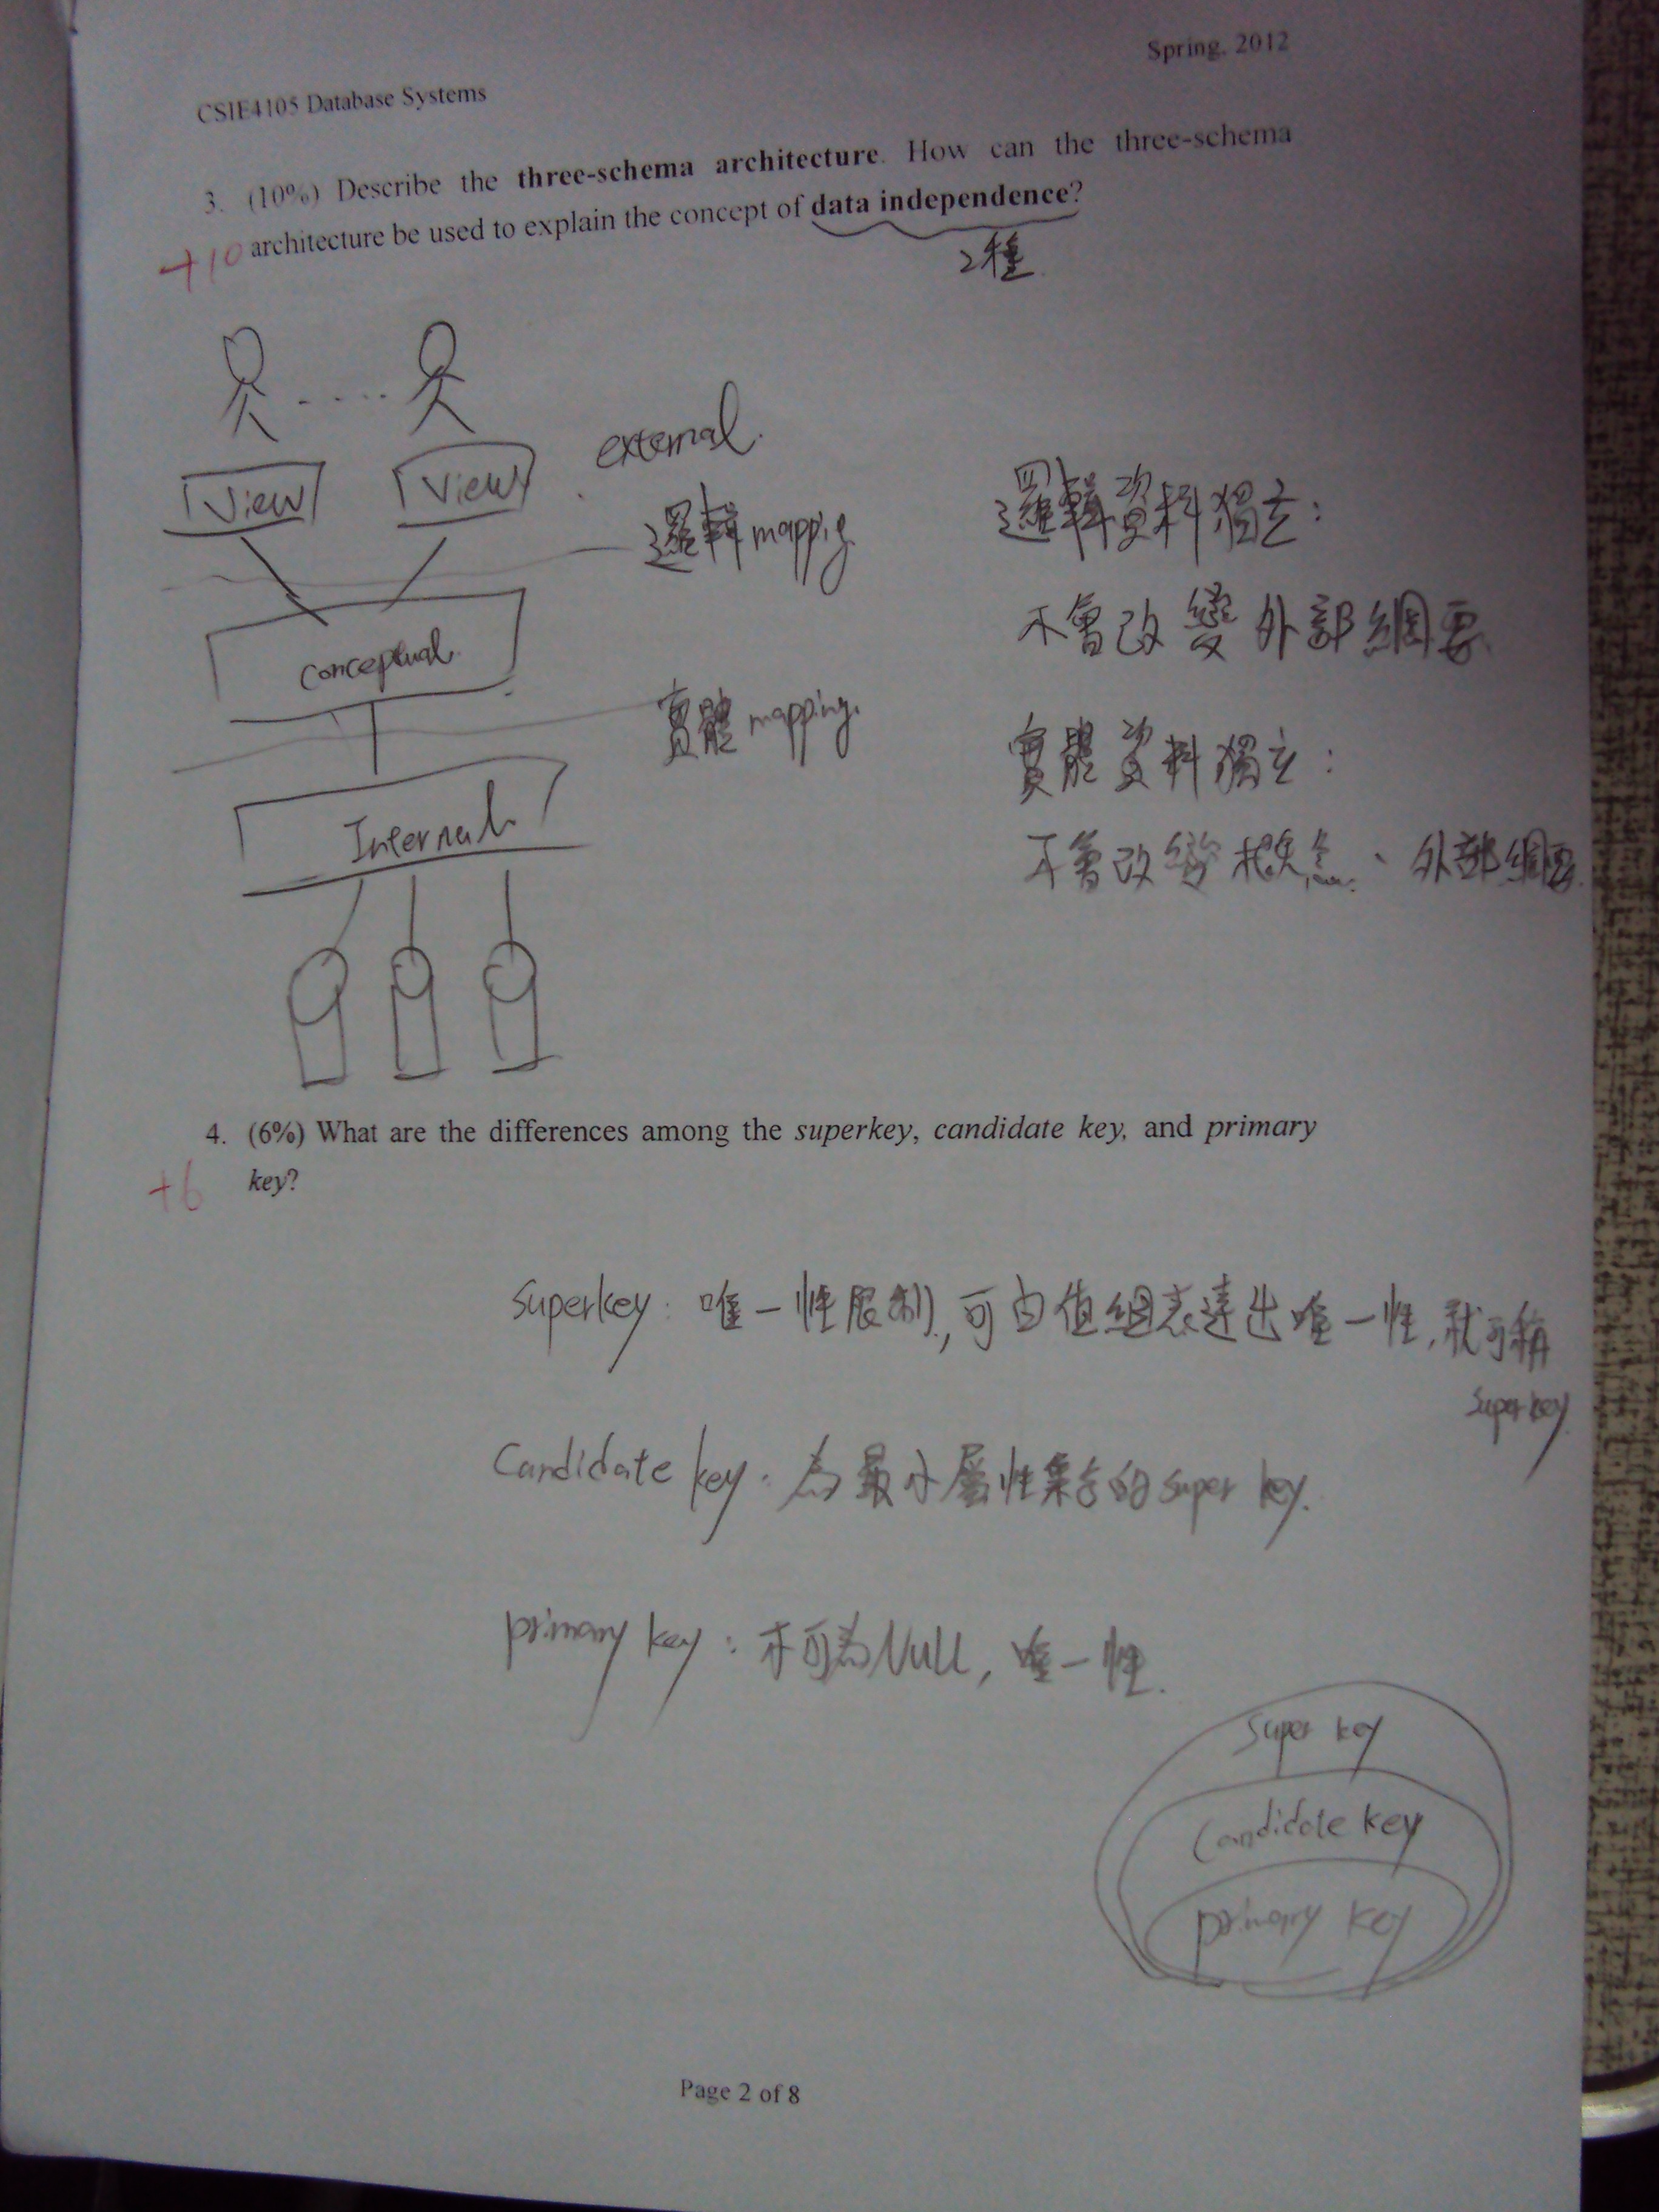 Spring, 2012
CSIE4105 Database Systems
3. (10%) Describe the three-schema architecture. How can the three-schema
architecture be used to explain the concept of data independence?
+10
2種
external.
View
View
邏輯mappig
邏輯資料獨立:
不會改變外部綱要
conceptual
實體mapping.
實體資料獨立:
不會改變概念、外部綱要
Internal
4. (6%) What are the differences among the superkey, candidate key, and primary
key?
+6
Superkey: 唯一性限制, 可由值組表達出唯一性, 就可稱
superkey.
Candidate key: 為最小屬性集合的super key.
primary key: 不可為Null, 唯一性.
Super key
Candidate key
primary key
Page 2 of 8